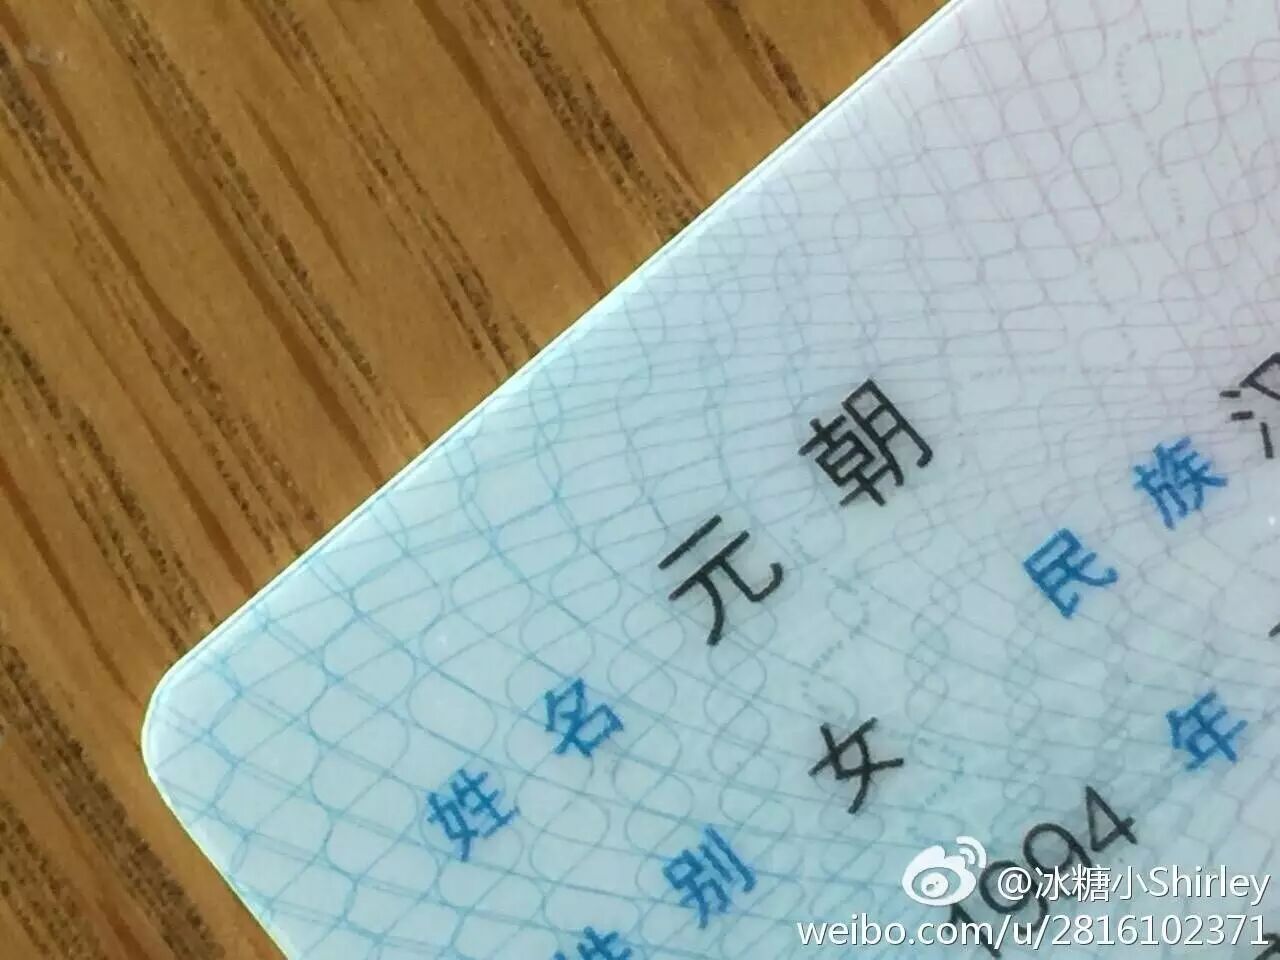 姓名 元朝
性别 女 民族 汉
1994 年
@冰糖小Shirley
weibo.com/u/2816102371